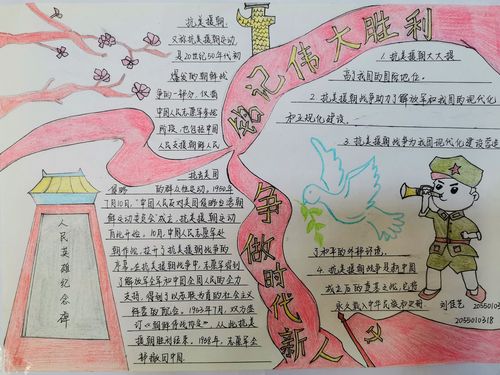 铭记伟大胜利
争做时代新人
抗美援朝,
又称抗美援朝运动,
是20世纪50年代初
爆发的朝鲜战
争的一部分,仅指
中国人民志愿军参战
阶段,也包括中国
人民支援朝鲜人民
抗击美国
侵略的群众性运动。1950年
7月10日,“中国人民反对美国侵略台湾朝
鲜运动委员会”成立,抗美援朝运动
自此开始。10月,中国人民志愿军赴
朝作战,拉开了抗美援朝战争的
序幕。在抗美援朝战争中,志愿军得到
了解放军全军和中国全国人民的全力
支持,得到了以苏联为首的社会主义
阵营的配合。1953年7月,双方签
订《朝鲜停战协定》,从此抗美
援朝胜利结束。1958年,志愿军全
部撤回中国。
人民英雄纪念碑
1.抗美援朝大大提
高了我国的国际地位。
2.抗美援朝战争助力了解放军和我国的现代化
和正规化建设。
3.抗美援朝战争为我国现代化建设营造
了和平的外部环境。
4.抗美援朝战争是新中国
成立之后的
永久载入中华民族
2055010318
2055010318